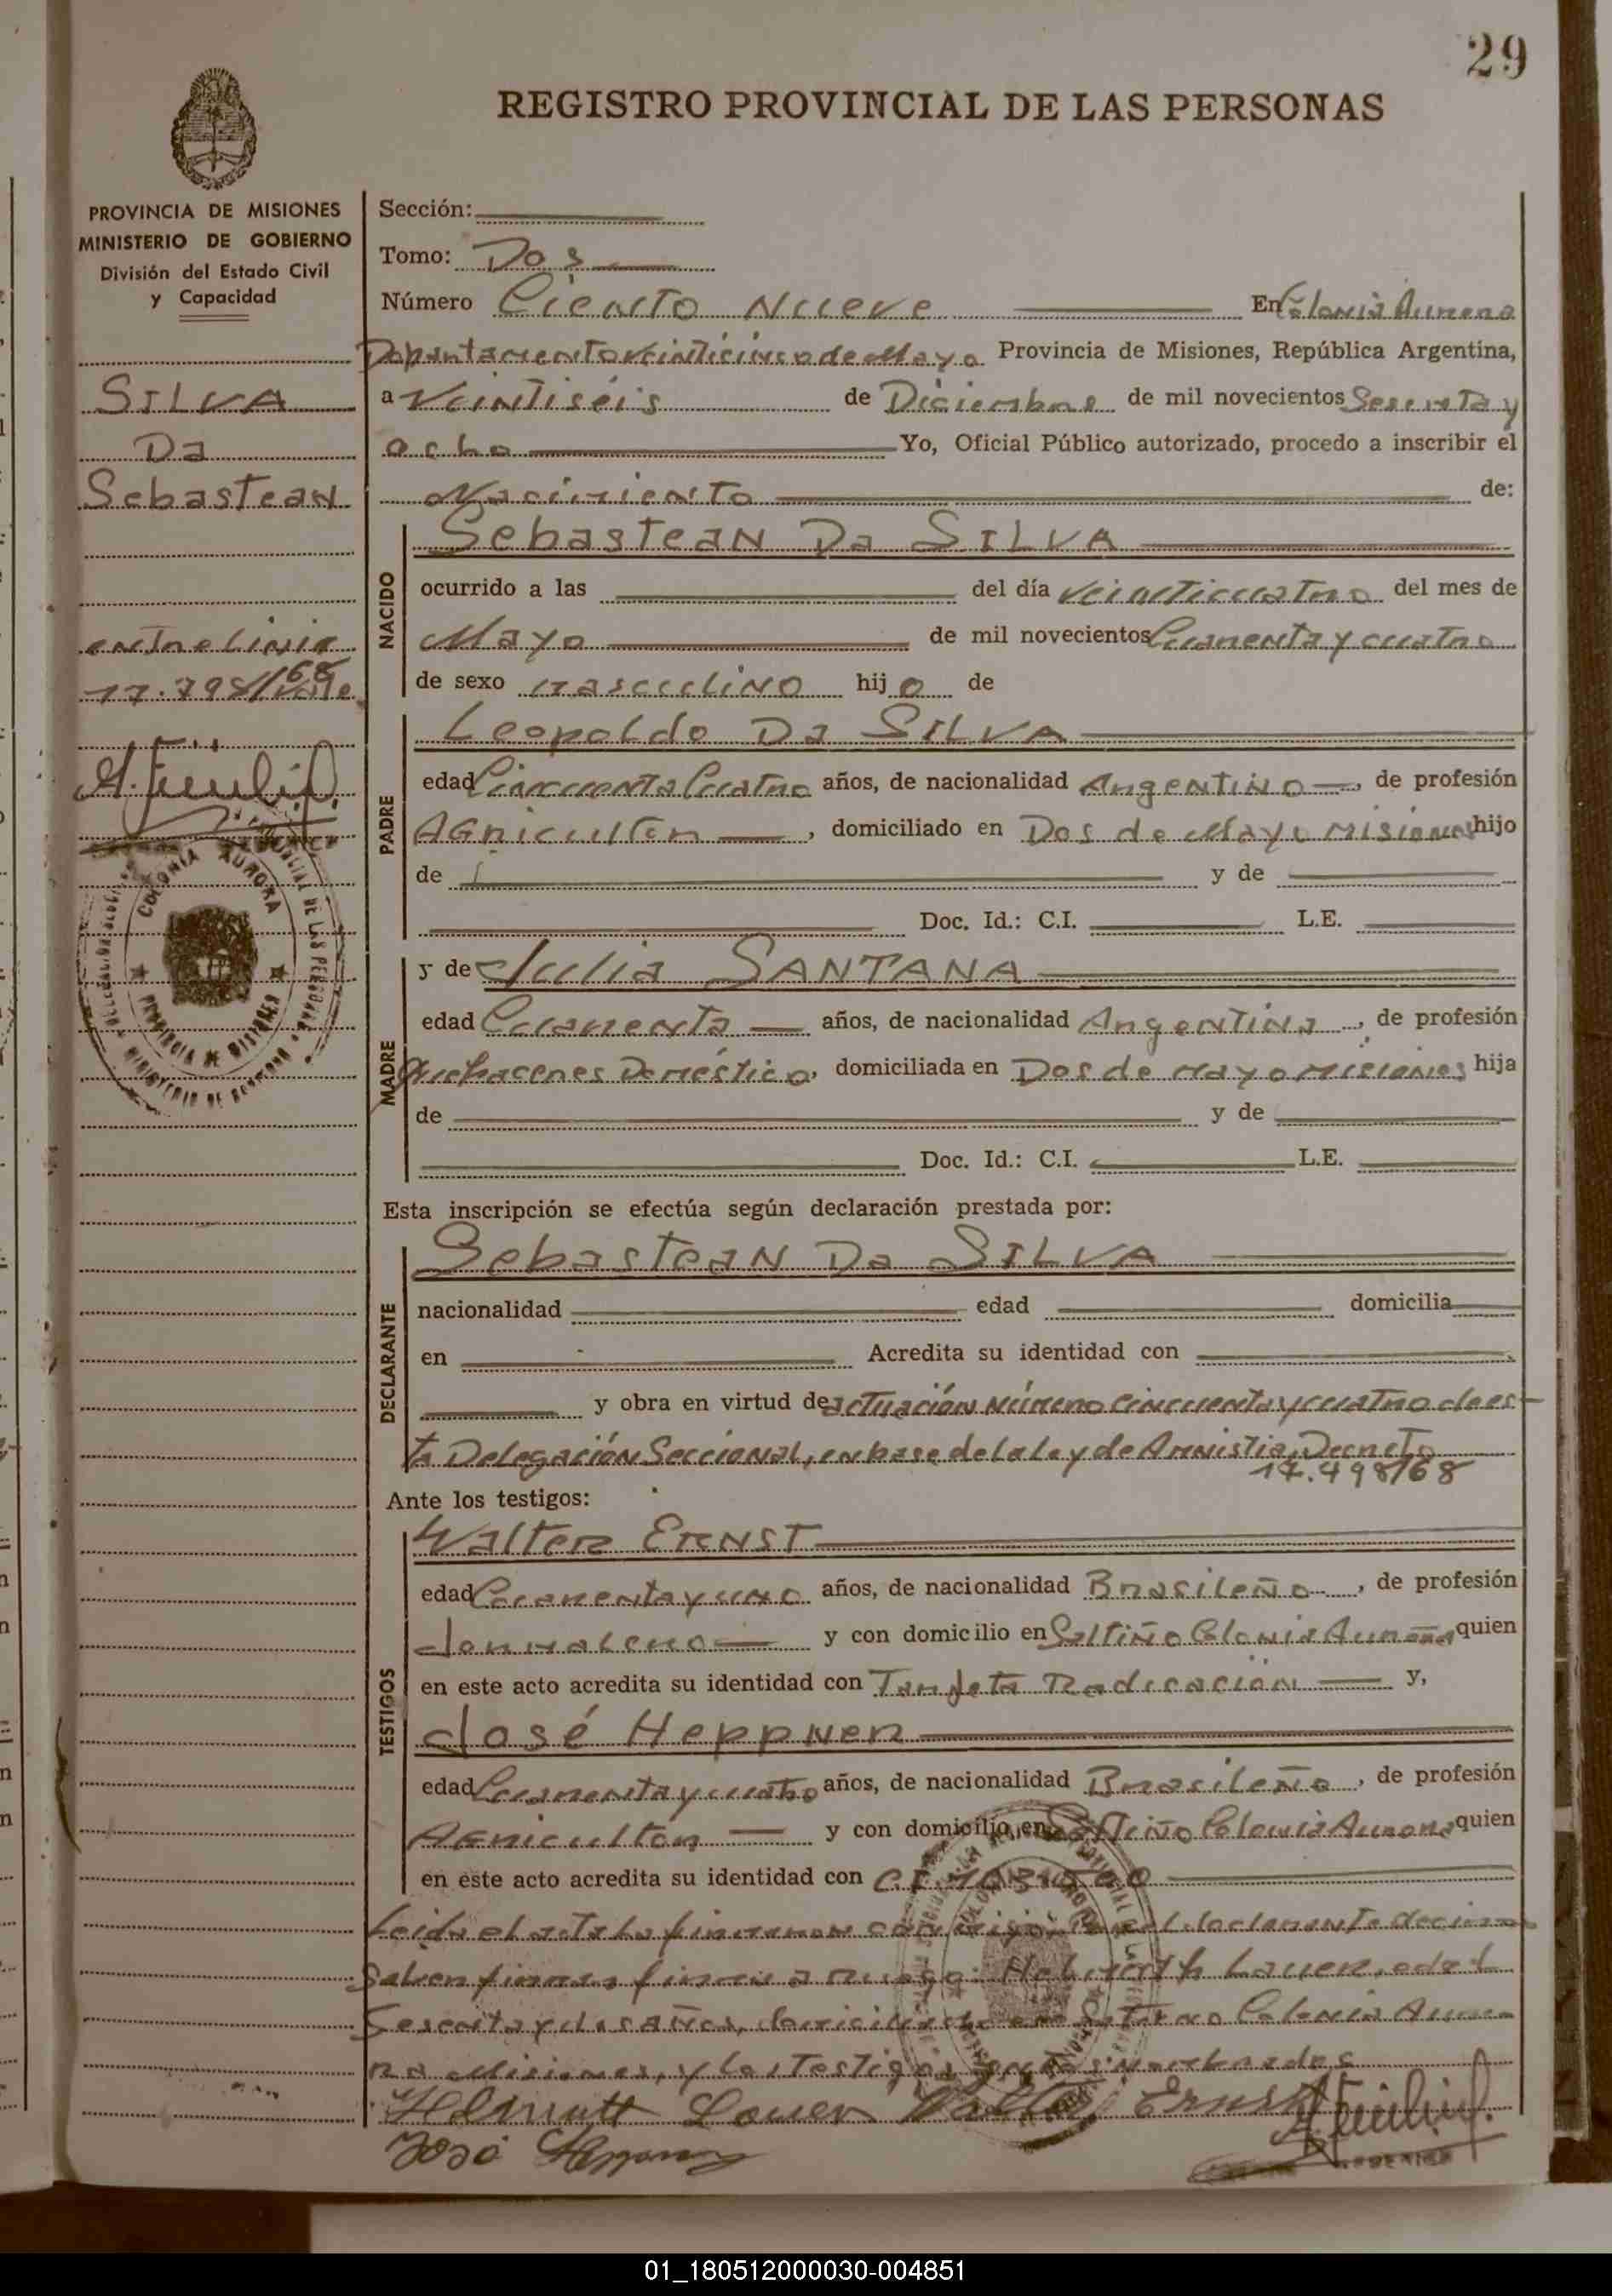 29
REGISTRO PROVINCIAL DE LAS PERSONAS
PROVINCIA DE MISIONES
MINISTERIO DE GOBIERNO
División del Estado Civil
y Capacidad
SILVA
Da
Sebastean
entre linia
17.798/68 Vale
COLONIA AURORA
PROVINCIA DE MISIONES
Sección:
Tomo: Dos
Número Ciento Nueve En Colonia Aurora
Departamento Veinticinco de Mayo Provincia de Misiones, República Argentina,
a Veintiséis de Diciembre de mil novecientos Sesenta y
ocho Yo, Oficial Público autorizado, procedo a inscribir el
Nacimiento de:
NACIDO
Sebastean Da SILVA
ocurrido a las del día veinticuatro del mes de
Mayo de mil novecientos Cuarenta y cuatro
de sexo masculino hijo de
PADRE
Leopoldo Da SILVA
edad Cincuenta Cuatro años, de nacionalidad Argentino, de profesión
Agricultor, domiciliado en Dos de Mayo Misiones hijo
de y de
Doc. Id.: C.I. L.E.
MADRE
y de Julia SANTANA
edad Cuarenta años, de nacionalidad Argentina, de profesión
Quehaceres Doméstico, domiciliada en Dos de Mayo Misiones hija
de y de
Doc. Id.: C.I. L.E.
Esta inscripción se efectúa según declaración prestada por:
DECLARANTE
Sebastean Da SILVA
nacionalidad edad domicilia
en Acredita su identidad con
y obra en virtud de actuación número cincuenta y cuatro de es-
ta Delegación Seccional, en base de la ley de Amnistia, Decreto
17.498/68
Ante los testigos:
TESTIGOS
Walter ERNST
edad Cuarenta y uno años, de nacionalidad Brasileño, de profesión
Jornalero y con domicilio en Saltiño Colonia Aurora quien
en este acto acredita su identidad con Tarjeta Radicación y,
José Heppner
edad Cuarenta y cuatro años, de nacionalidad Brasileño, de profesión
Agricultor y con domicilio en Saltiño Colonia Aurora quien
en este acto acredita su identidad con C.I.
Leida el acta la firmaron conmigo, Por el declarante decir no
Saber firmar firma a ruego: Helmuth Lauer, edad
Sesenta y dos años, domiciliado en Colonia Auro-
ra Misiones, y los testigos nombrados
Helmuth Lauer Walter Ernst
José Heppner
01_180512000030-004851